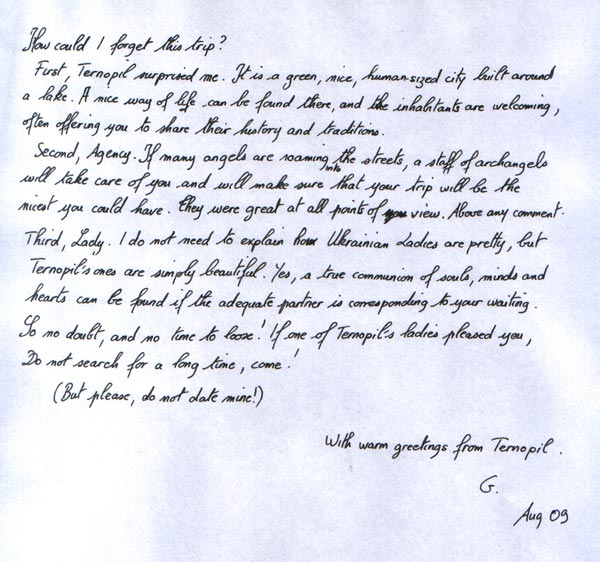 How could I forget this trip?
First, Ternopil surprised me. It is a green, nice, human-sized city built around
a lake. A nice way of life can be found there, and the inhabitants are welcoming,
often offering you to share their history and traditions.
Second, Agency. If many angels are roaming into the streets, a staff of archangels
will take care of you and will make sure that your trip will be the
nicest you could have. They were great at all points of view. Above any comment.
Third, Lady. I do not need to explain how Ukrainian Ladies are pretty, but
Ternopil's ones are simply beautiful. Yes, a true communion of souls, minds and
hearts can be found if the adequate partner is corresponding to your waiting.
So no doubt, and no time to loose! If one of Ternopil's ladies pleased you,
Do not search for a long time, come!
(But please, do not date mine!)
With warm greetings from Ternopil.
G.
Aug 09